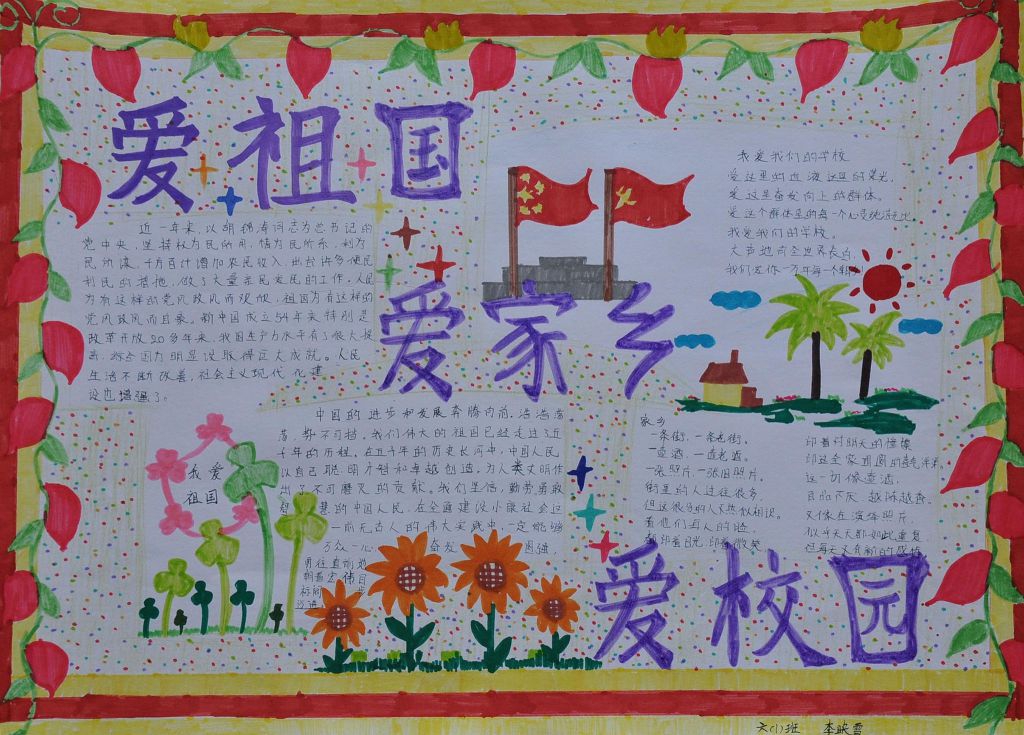 爱祖国
近一年来，以胡锦涛同志为总书记的
党中央，坚持权为民所用，情为民所系，利为
民所谋，千方百计增加农民收入，出台许多便民
利民的措施，做了大量亲民爱民的工作，人民
为有这样的党风政风而
祖国为有这样的
党风政风而自豪。新中国成立54年来特别是
改革开放20多年来，我国生产力水平有了很大提
高，综合国力明显
取得巨大成就。人民
生活不断改善，社会主义现代 化建
设也增强了。
爱家乡
我爱我们的学校
爱这里的
爱这里奋发向上的群体。
爱这个群体里的每一个心灵
我爱我们的学校。
大声地向全世界表白
我爱
祖国
中国的进步和发展奔腾向前，浩浩荡
荡，势不可挡。我们伟大的祖国已经走过了近
千年的历程。在五千年的历史长河中，中国人民
以自己聪明才智和卓越创造，为人类文明作
出了不可磨灭的贡献。我们坚信，勤劳勇敢
智慧的中国人民，在全面建设小康社会这
一前无古人的伟大实践中，一定能够
万众一心 奋发图强，
勇往直前
朝着宏伟目
家乡
一条街，一条老街。
一壶酒，一壶老酒。
一张照片，一张旧照片。
街里的人过往很多，
但这很多的人又
相识。
看他们每人的脸，
印着对明天的憧憬
这一切像壶酒，
又像在演绎照片，
但每天又有新的感悟
爱校园
六(1)班 李映雪